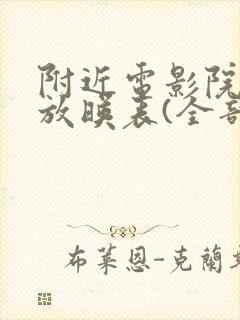 附近電影院
放映表(全部
布萊恩-克蘭